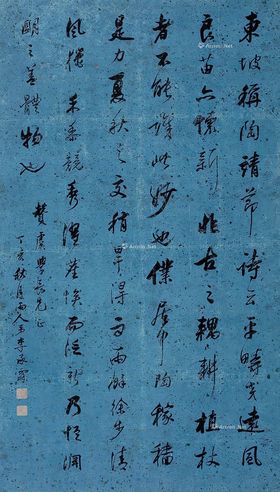 東坡稱陶靖節詩云平疇交遠風
良苗亦懷新非古之耦耕植杖
者不能識此妙也僕居中陶稼穡
是力夏秋之交稍旱得雨雨餘徐步清
風禾黍競秀濯塵埃而泛新乃悟淵
明之善體物也
學長先正
丁亥秋月